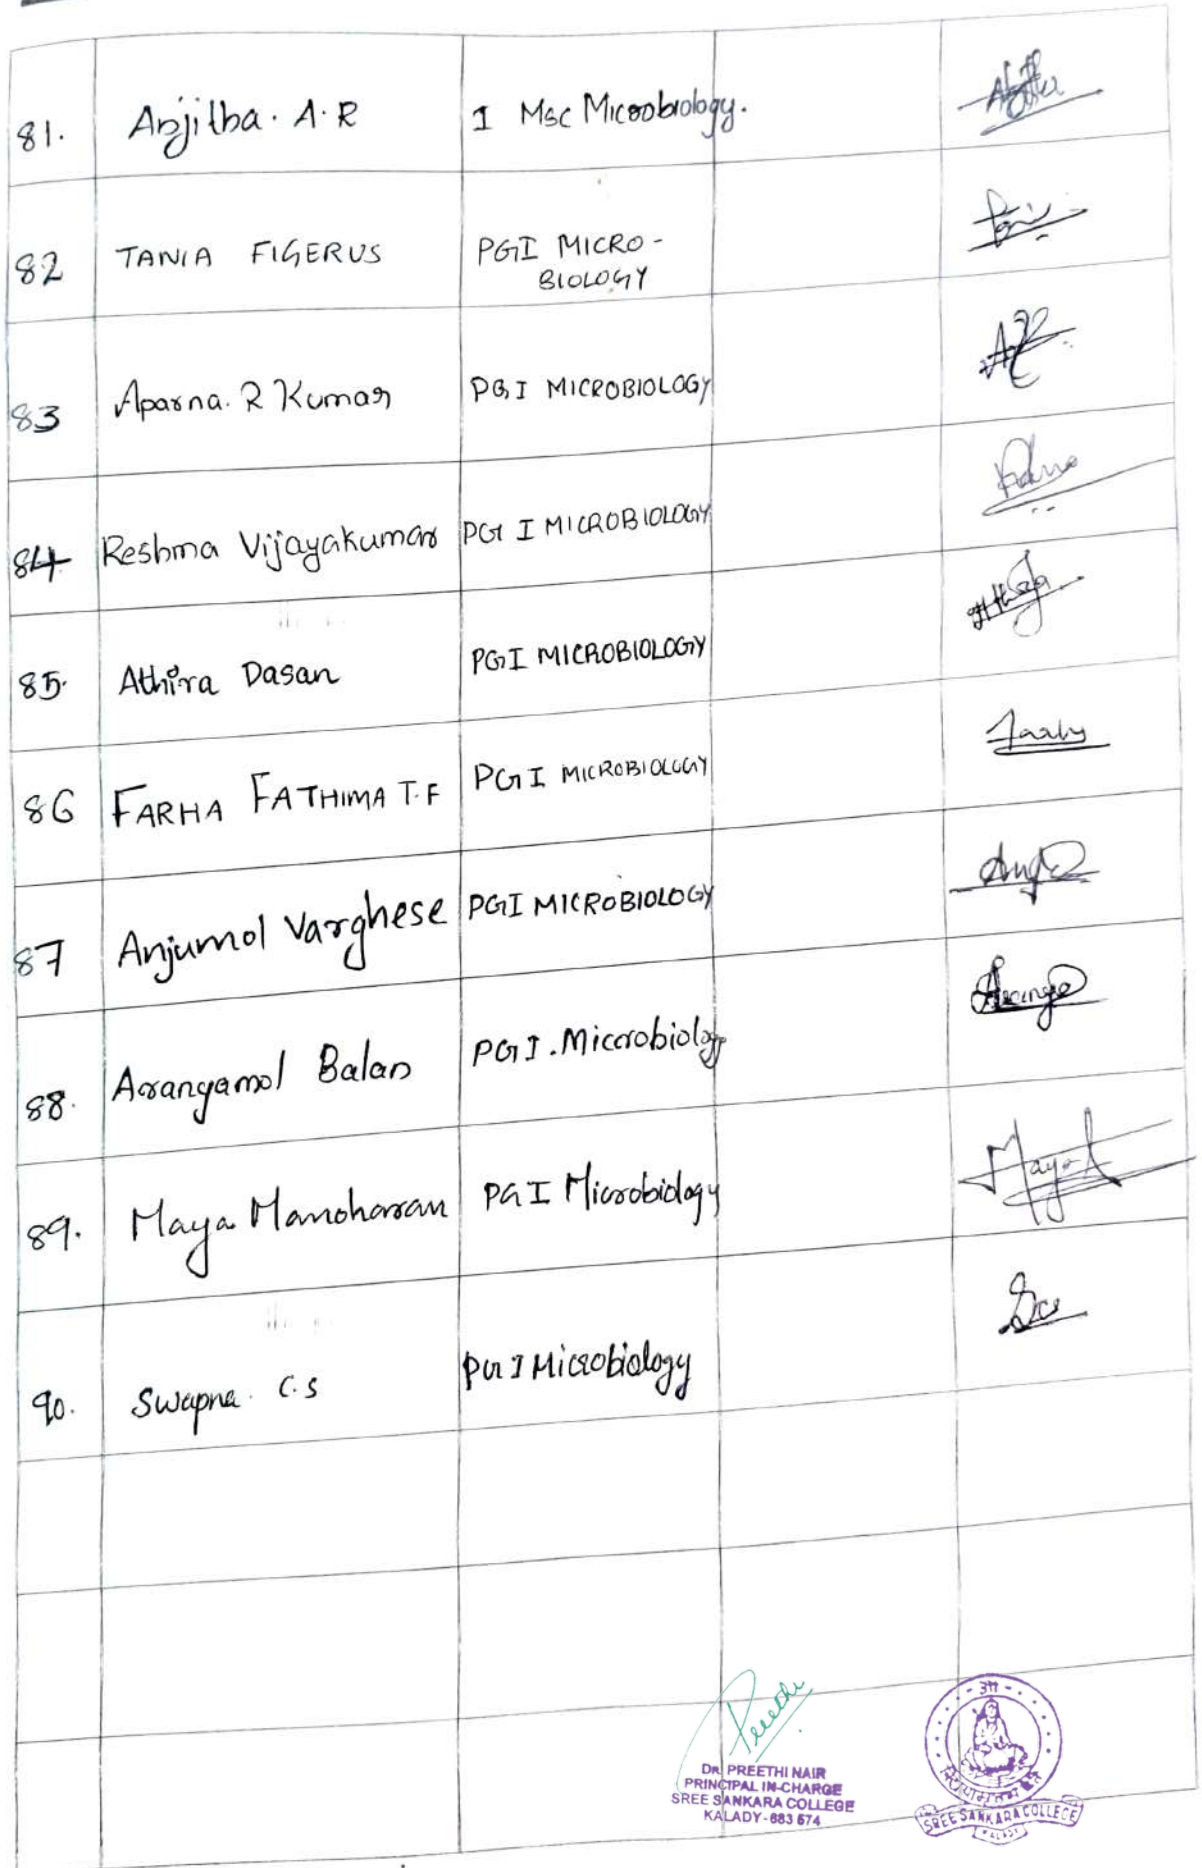 81. Anjitha. A. R I Msc Microbiology.
82 TANIA FIGERUS PGI MICRO-
BIOLOGY
83 Aparna. R Kumar PG I MICROBIOLOGY
84 Reshma Vijayakumar PG I MICROBIOLOGY
85. Athira Dasan PGI MICROBIOLOGY
86 FARHA FATHIMA T.F PG I MICROBIOLOGY
87 Anjumol Varghese PGI MICROBIOLOGY
88. Arangamol Balan PG I. Microbiology
89. Maya Manoharan PG I Microbiology
90. Swapna. C.S PG I Microbiology
Preethi
DR. PREETHI NAIR
PRINCIPAL IN-CHARGE
SREE SANKARA COLLEGE
KALADY-683 574
SREE SANKARA COLLEGE
KALADY